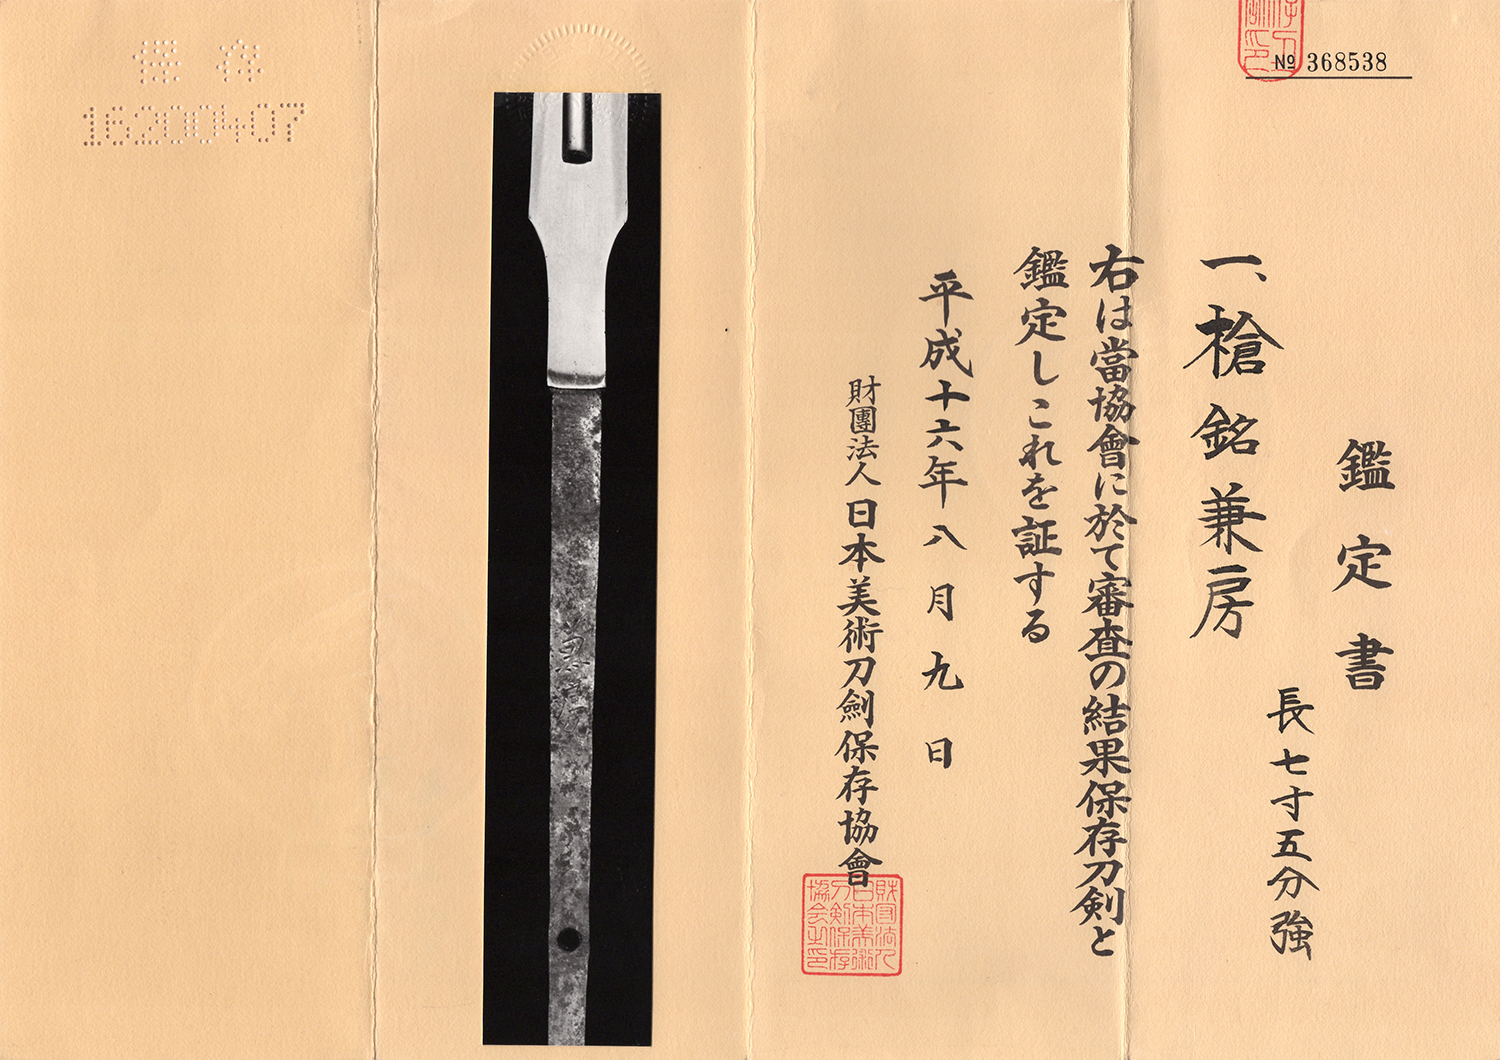 № 368538
鑑定書
一、槍 銘 兼房
長七寸五分強
右は當協會に於て審査の結果保存刀剣と
鑑定しこれを証する
平成十六年八月九日
財團法人 日本美術刀劍保存協會
財団法人
日本美術
刀剣保存
協会之印
保存
16200407
兼房